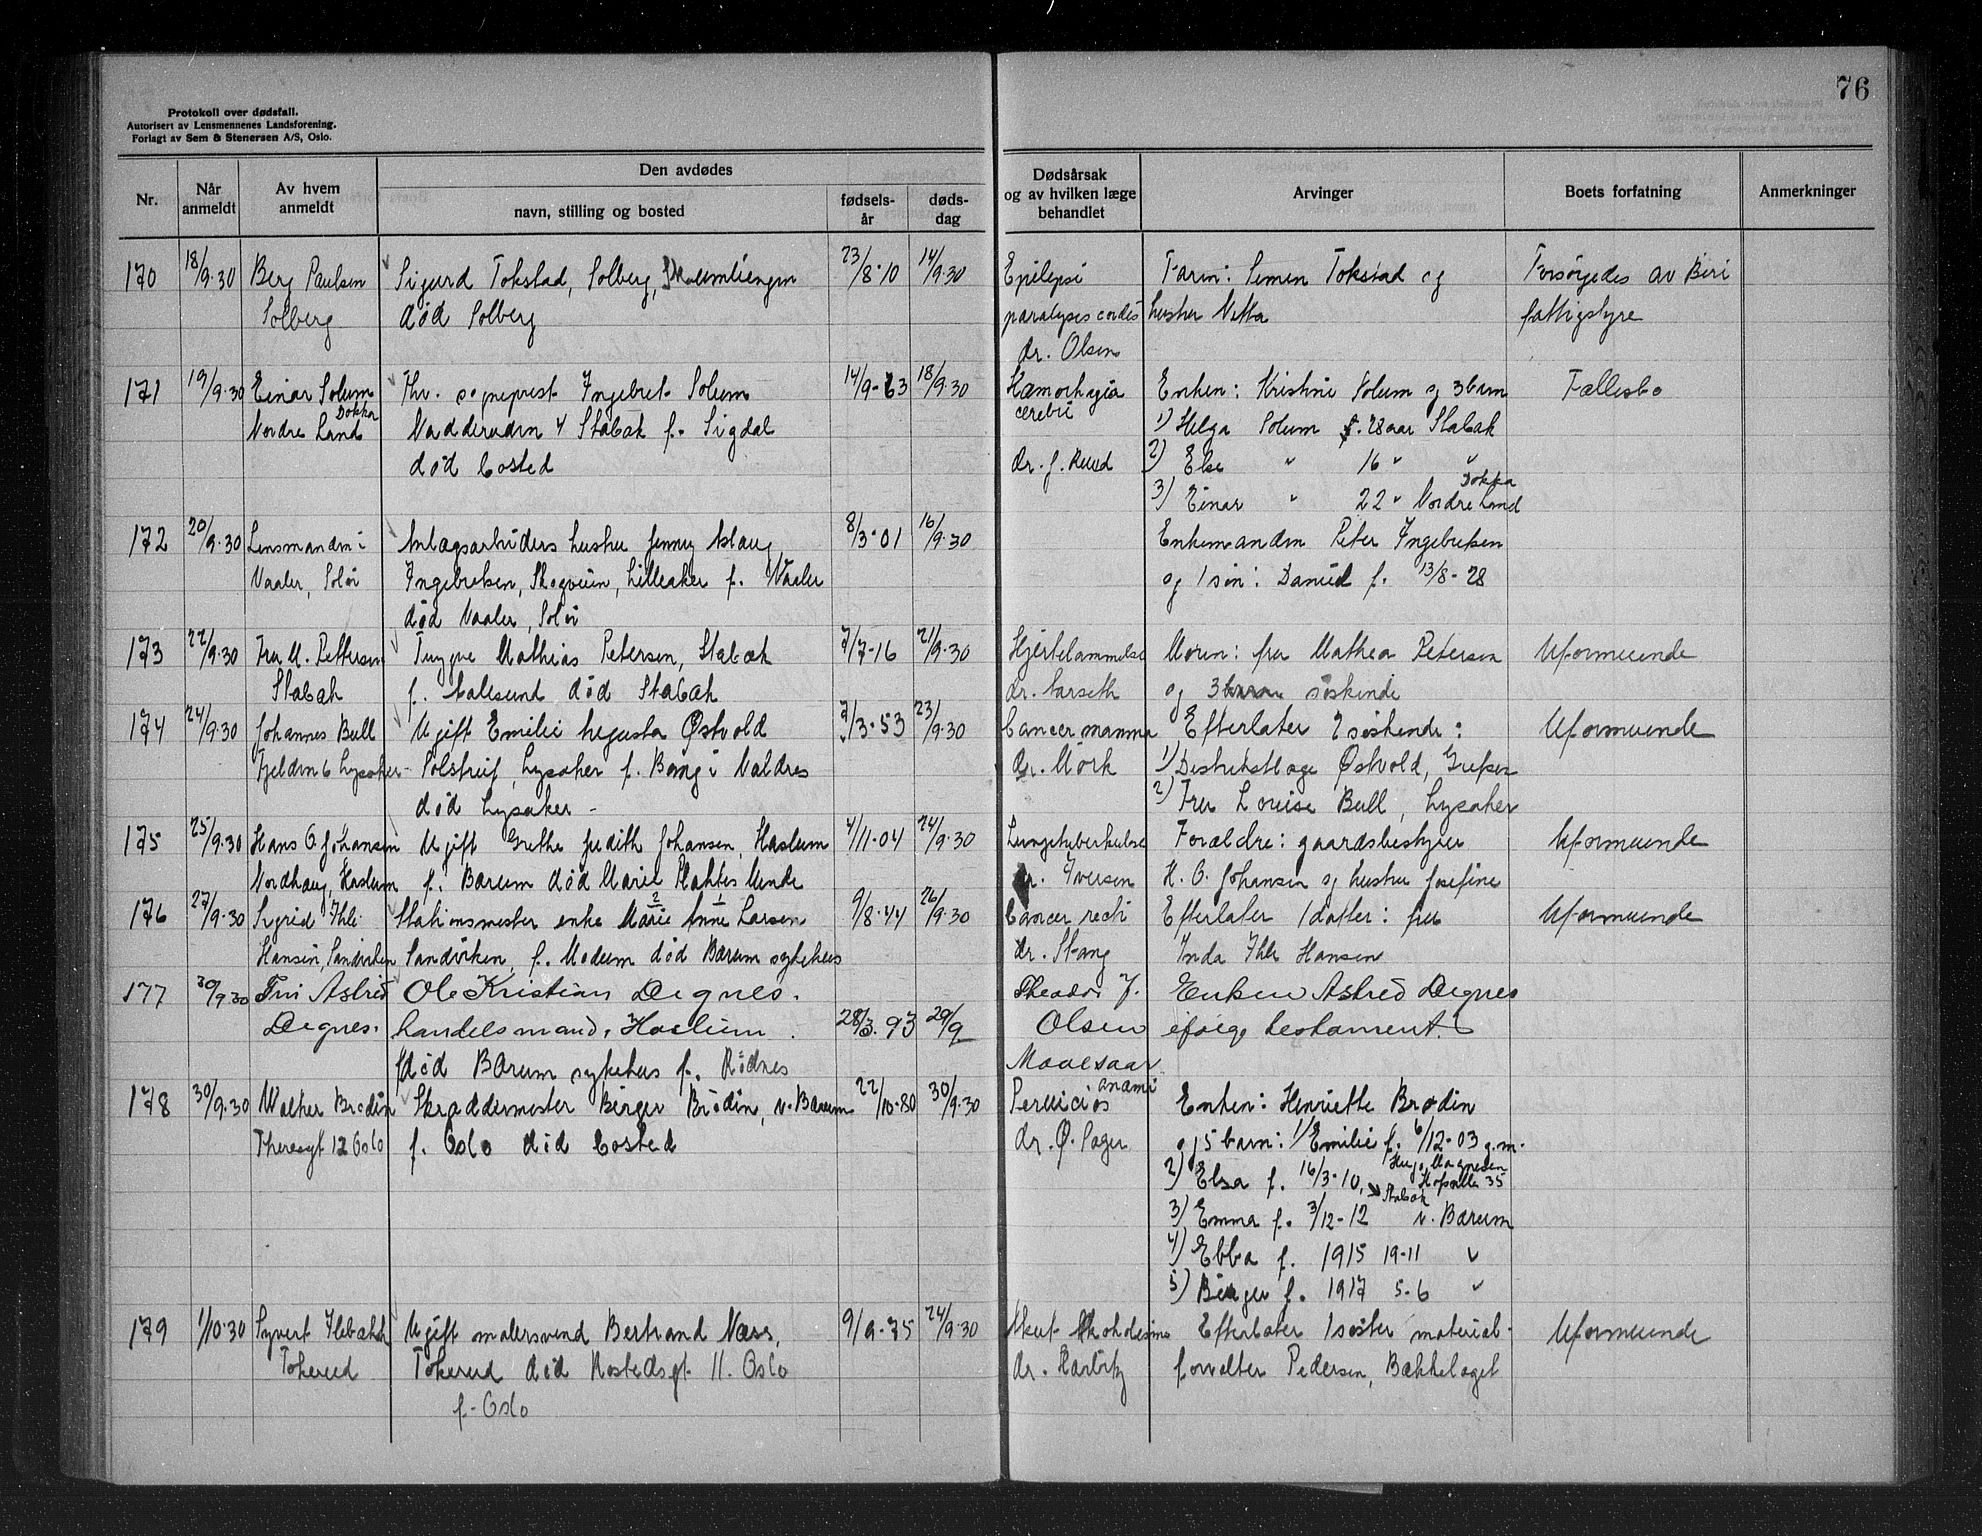 76
Protokoll over dødsfall.
Autorisert av Lensmennenes Landsforening.
Forlagt av Sem & Stenersen A/S, Oslo.
Nr.
Når anmeldt
Av hvem anmeldt
Den avdødes
navn, stilling og bosted
fødsels-år
døds-dag
Dødsårsak og av hvilken læge behandlet
Arvinger
Boets forfatning
Anmerkninger
170 18/9.30 Berg Paulsen Sigurd Tokstad, Solberg, 23/8-10 14/9.30 Epilepsi Farm: Simen Tokstad og Forsørgedes av Biri
Solberg død Solberg paralyses cordis hustru fattigstyre
dr. Olsen
171 19/9.30 Einar Solum Fhv. sogneprest Ingebret Solum 14/9-63 18/9.30 Hæmorhagia Enken: Kristine Solum og 3 barn Fællesbo
Dokka cerebri
Nordre Land 4 Stabæk f. Sigdal 1) Helga Solum f. 28 aar Stabæk
død bosted dr. J. Ruud 2) Else " 16 " "
Dokka
3) Einar " 22 " Nordre Land
172 20/9.30 Lensmanden i Anlægsarbeiders hustru Jenny Aslaug 8/3-01 16/9.30 Enkemanden Peter Ingebretsen
Vaaler, Solør Ingebretsen, Skogveien, Lilleaker f. Vaaler og 1 søn: Daniel f. 13/8-28
død Vaaler, Solør
173 22/9.30 Fru M. Pettersen Trygve Mathias Petersen, Stabæk 7/7-16 21/9.30 Hjertelammelse Moren: fru Mathea Petersen Uformuende
Stabæk f. Aalesund død Stabæk dr. Aarseth og 3 søskende
174 24/9.30 Johannes Bull Ugift Emilie Augusta Østvold 7/3-53 23/9.30 Cancer mamma Efterlater 2 søskende: Uformuende
Fjeldvn 6 Lysaker Solstreif, Lysaker f. Bang i Valdres dr. Mørk 1) Distriktslæge Østvold, Grefsen
død Lysaker - 2) Fru Louise Bull, Lysaker
175 25/9.30 Hans O. Johansen Ugift Grethe Judith Johansen, Haslum 4/11-04 24/9.30 Lungetuberkulose Forældre: gaardsbestyrer Uformuende
Nordhaug, Haslum f. Bærum død Marie Plahtes Minde dr. Iversen H. O. Johansen og hustru Josefine
2 1
176 27/9-30 Sigrid Ihle Stationsmester enke Marie Anne Larsen 9/8-44 26/9.30 Cancer recti Efterlater 1 datter: fru Uformuende
Hansen, Sandviken Sandviken, f. Modum død Bærum sykehus dr. Stang Inda Ihle Hansen
177 30/9 30 Fru Astrid Ole Kristian Degnes. Theodor J. Enken Astrid Degnes
Degnes. handelsmand, Haslum. 28/3. 93 29/9 Olsen ifølge testament.
død Bærum sykehus f. Rødnes Mavesaar
178 30/9.30 Walther Brodin Skræddermester Birger Brodin, v. Bærum 22/10-80 30/9.30 Perniciøs anæmi Enken: Henriette Brodin
Theresegt 12 Oslo f. Oslo død bosted dr. Ø. Sager og 5 barn: 1) Emilie f. 6/12-03 g.m.
Hugo Magnesen
2) Elsa f. 16/3-10, Stabæk Hopsalle 35
3) Emma f. 3/12-12 v. Bærum
4) Ebba f. 1915 19-11 "
5) Birger f. 1917 5-6 "
179 1/10.30 Syvert Ilebækk Ugift malersvend Bertrand Næss, 9/9-75 24/9.30 Akut Alkoholisme Efterlater 1 søster material- Uformuende
Tokerud Tokerud død Rostedsgt. 11. Oslo dr. forvalter Pedersen, Bækkelaget
f. Oslo